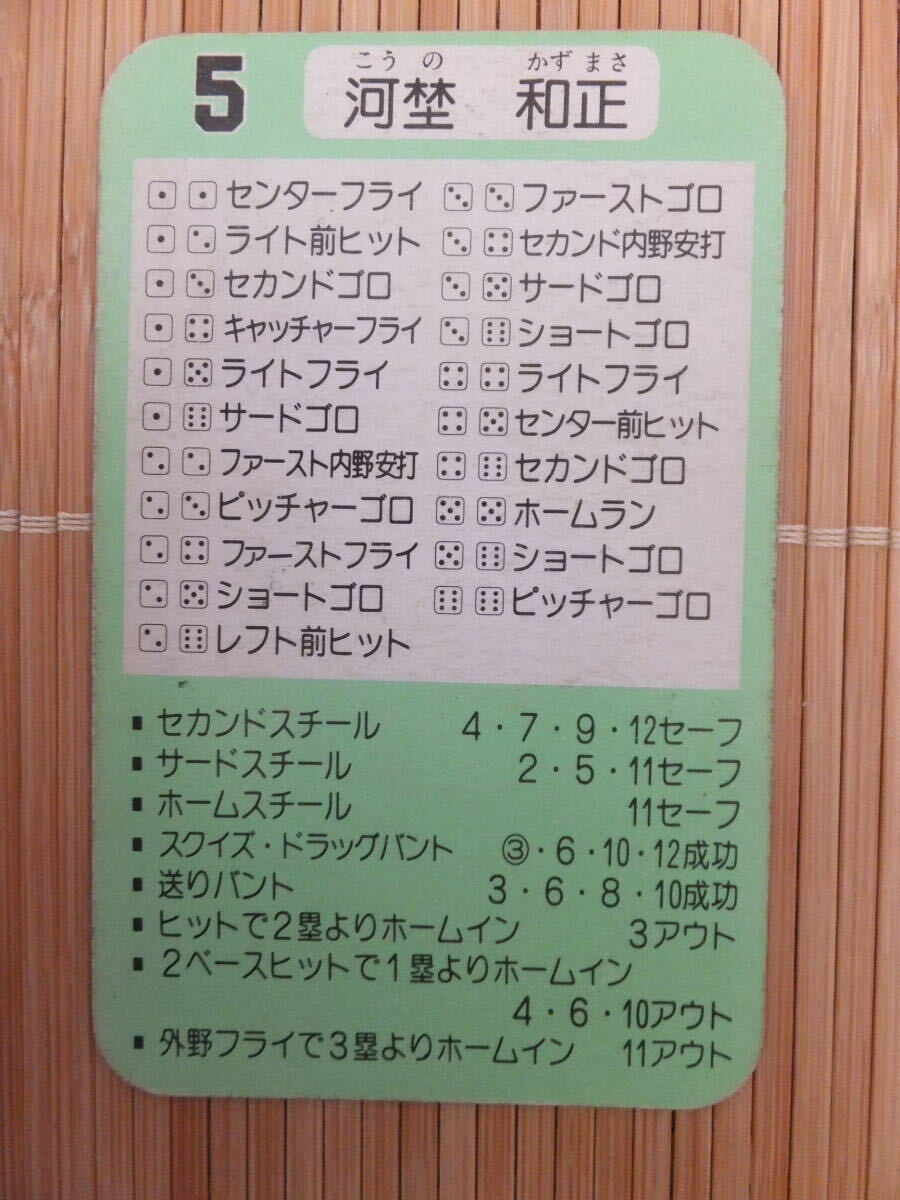 5
こうの かずまさ
河埜 和正
⚀ ⚀ センターフライ
⚀ ⚁ ライト前ヒット
⚀ ⚂ セカンドゴロ
⚀ ⚃ キャッチャーフライ
⚀ ⚄ ライトフライ
⚀ ⚅ サードゴロ
⚁ ⚁ ファースト内野安打
⚁ ⚂ ピッチャーゴロ
⚁ ⚃ ファーストフライ
⚁ ⚄ ショートゴロ
⚁ ⚅ レフト前ヒット
⚂ ⚂ ファーストゴロ
⚂ ⚃ セカンド内野安打
⚂ ⚄ サードゴロ
⚂ ⚅ ショートゴロ
⚃ ⚃ ライトフライ
⚃ ⚄ センター前ヒット
⚃ ⚅ セカンドゴロ
⚄ ⚄ ホームラン
⚄ ⚅ ショートゴロ
⚅ ⚅ ピッチャーゴロ
▪ セカンドスチール 4・7・9・12セーフ
▪ サードスチール 2・5・11セーフ
▪ ホームスチール 11セーフ
▪ スクイズ・ドラッグバント ③・6・10・12成功
▪ 送りバント 3・6・8・10成功
▪ ヒットで2塁よりホームイン 3アウト
▪ 2ベースヒットで1塁よりホームイン
4・6・10アウト
▪ 外野フライで3塁よりホームイン 11アウト